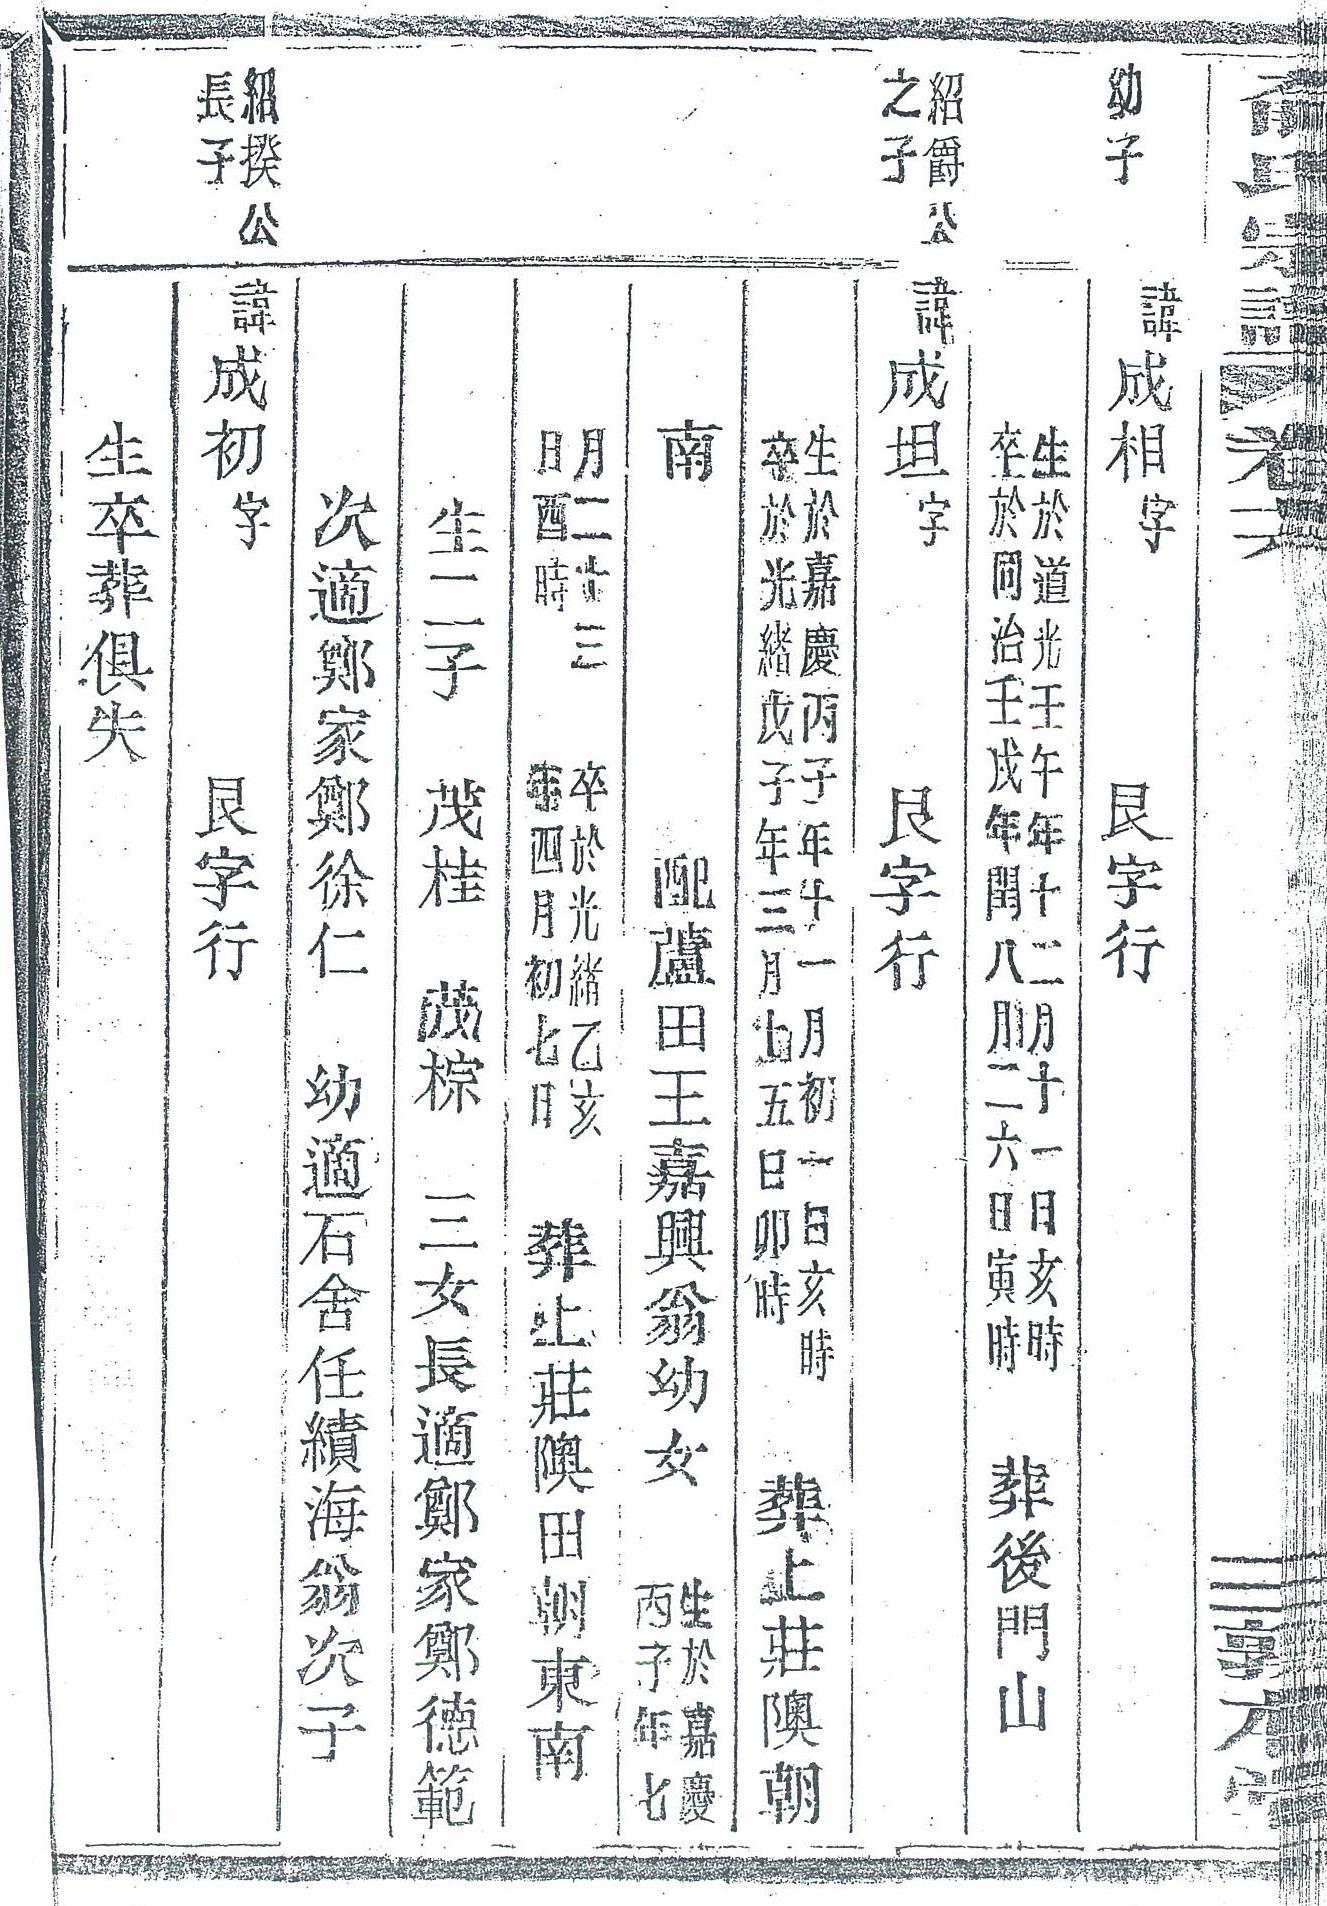 氏宗譜
卷六
幼子
諱成相字
艮字行
生於道光壬午年十二月十一日亥時
卒於同治壬戌年閏八月二六日寅時
葬後門山
紹爵公
之子
諱成坦字
艮字行
生於嘉慶丙子年十一月初一日亥時
卒於光緒戊子年三月十五日卯時
葬上莊隩朝
南
配蘆田王嘉興翁幼女
生於嘉慶
丙子年七
月二十三
日酉時
卒於光緒乙亥
年四月初七日
葬上莊隩田朝東南
生二子 茂桂 茂棕 三女長適鄭家鄭德範
次適鄭家鄭徐仁 幼適石舍任績海翁次子
紹揆公
長子
諱成初字
艮字行
生卒葬俱失